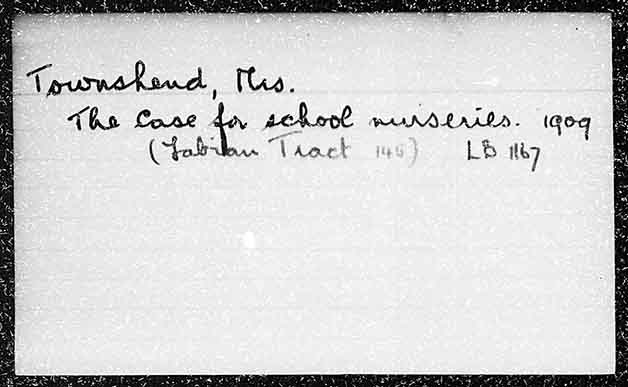 Townshend, Mrs.
The Case for school nurseries. 1909
(Fabian Tract 145) LB 1167